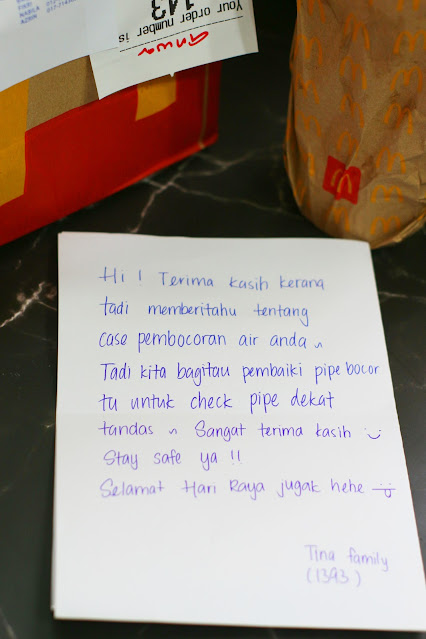 Your order number is
143
anwar
Hi ! Terima kasih kerana
tadi memberitahu tentang
case pembocoran air anda ~
Tadi kita bagitau pembaiki pipe bocor
tu untuk check pipe dekat
tandas ~ Sangat terima kasih :)
Stay safe ya !!
Selamat Hari Raya jugak hehe =)
Tina family
(1393)